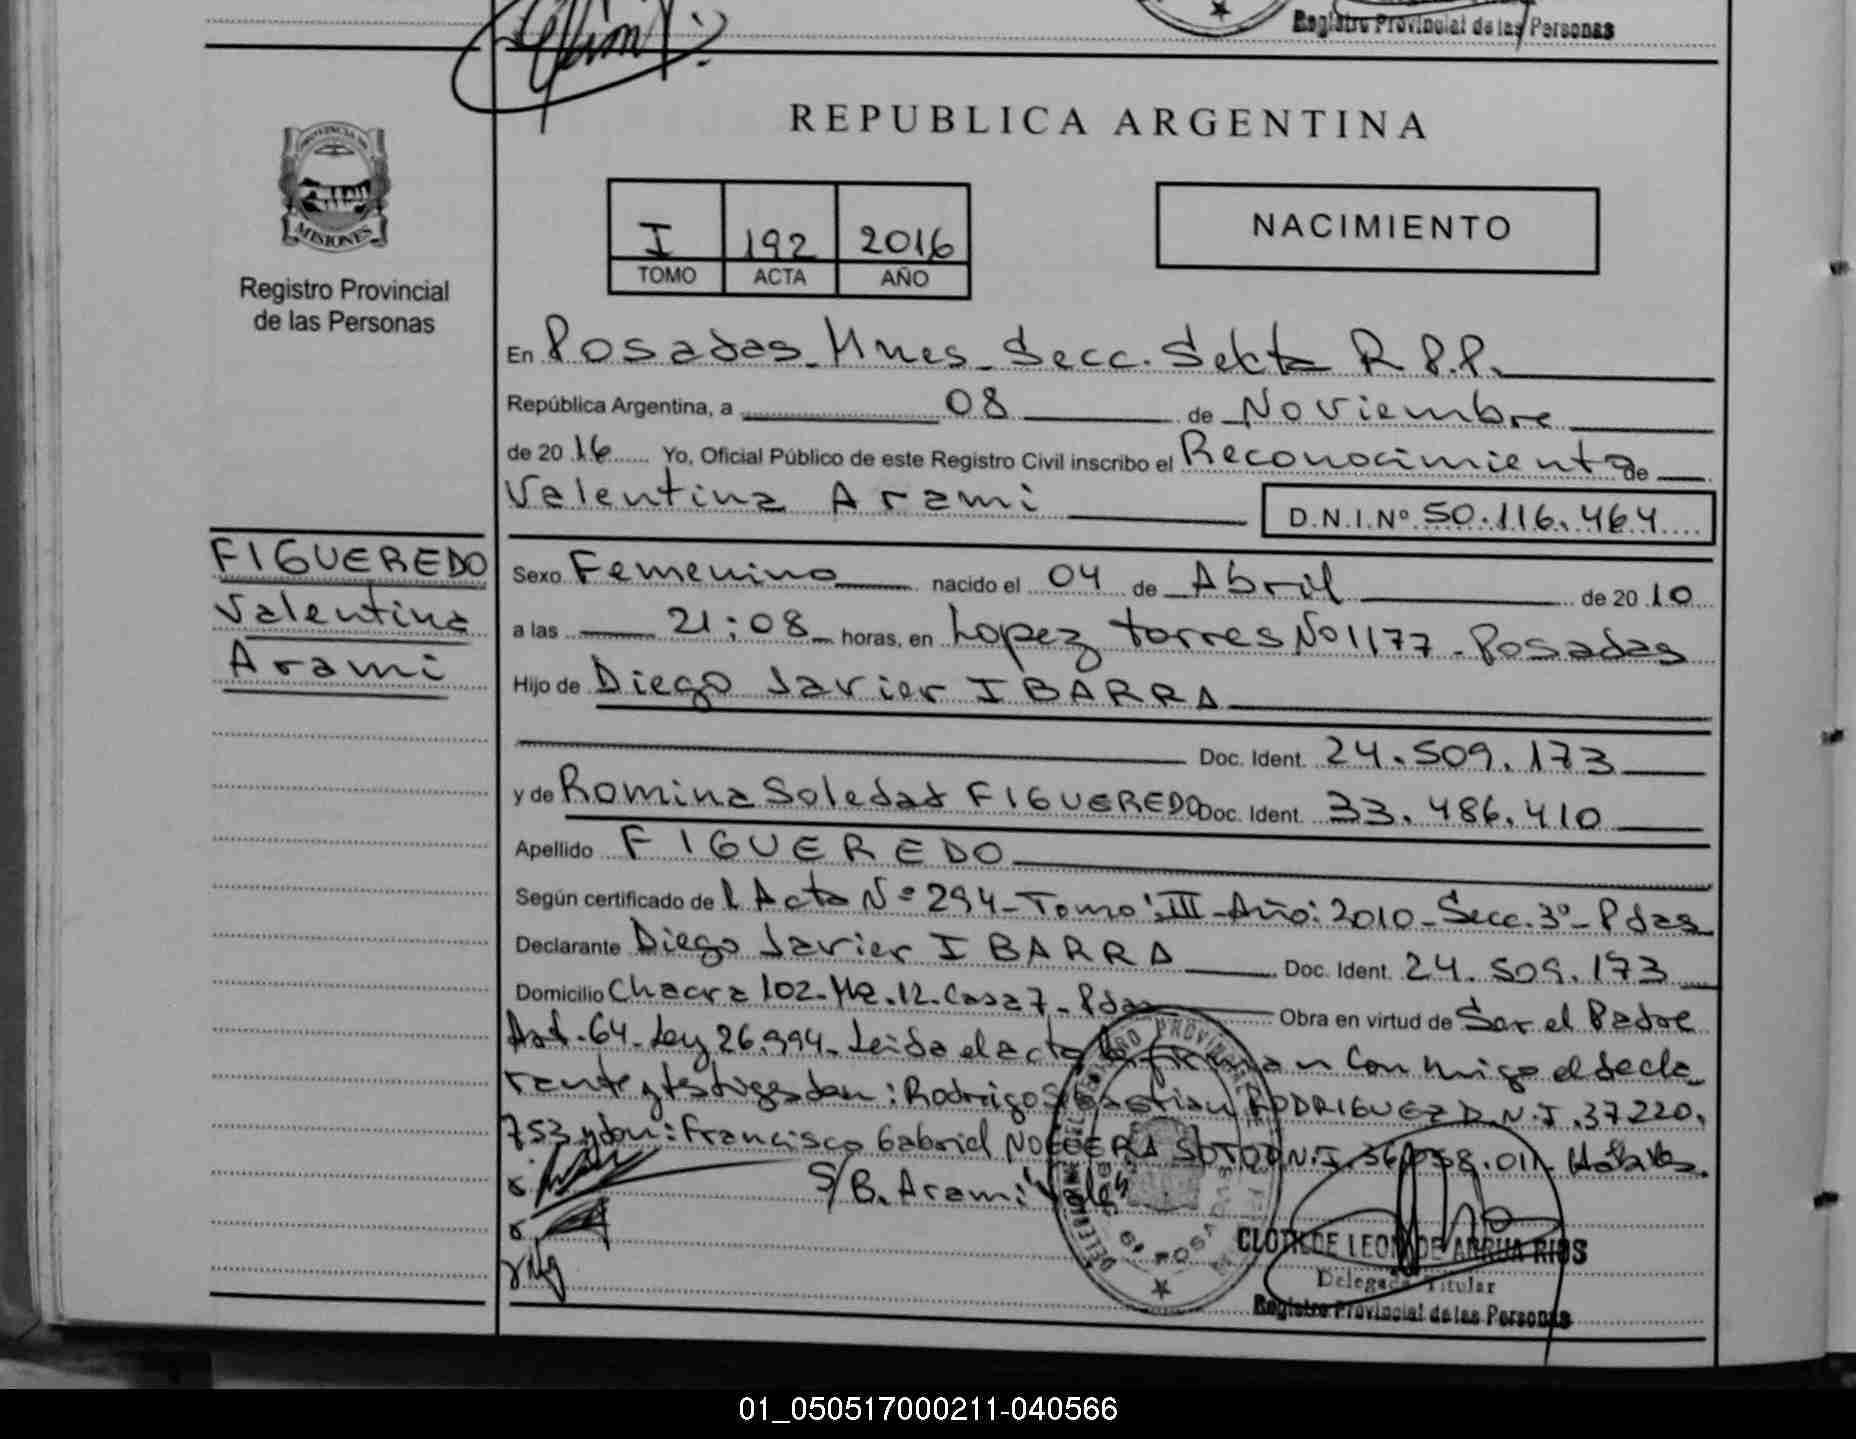 Registro Provincial de las Personas
REPUBLICA ARGENTINA
PROVINCIA DE
MISIONES
Registro Provincial
de las Personas
I 192 2016
TOMO ACTA AÑO
NACIMIENTO
En Posadas Mnes Secc. Sexta R.P.P.
República Argentina, a 08 de Noviembre
de 2016 Yo, Oficial Público de este Registro Civil inscribo el Reconocimiento de
Valentina Arami D.N.I.Nº 50.116.464
FIGUEREDO
Valentina
Arami
Sexo Femenino nacido el 04 de Abril de 2010
a las 21:08 horas, en Lopez Torres Nº 1177 - Posadas
Hijo de Diego Javier IBARRA
Doc. Ident. 24.509.173
y de Romina Soledad FIGUEREDO Doc. Ident. 33.486.410
Apellido FIGUEREDO
Según certificado del Acta Nº 294 - Tomo: III - Año: 2010 - Secc. 3º - Pdas
Declarante Diego Javier IBARRA Doc. Ident. 24.509.173
Domicilio Chacra 102 - Mz. 12 - Casa 7 - Pdas Obra en virtud de Ser el Padre
Art. 64 - Ley 26.994 - Leida el acta la firman conmigo el decla-
rante y testigos don: Rodrigo Sebastian RODRIGUEZ D.N.I. 37.220.
753 y don: Francisco Gabriel NOGUERA SOTO D.N.I. Habiles.
S/B. Arami Vale
CLOTILDE LEONOR ARRUA RIOS
Delegada Titular
Registro Provincial de las Personas
01_050517000211-040566